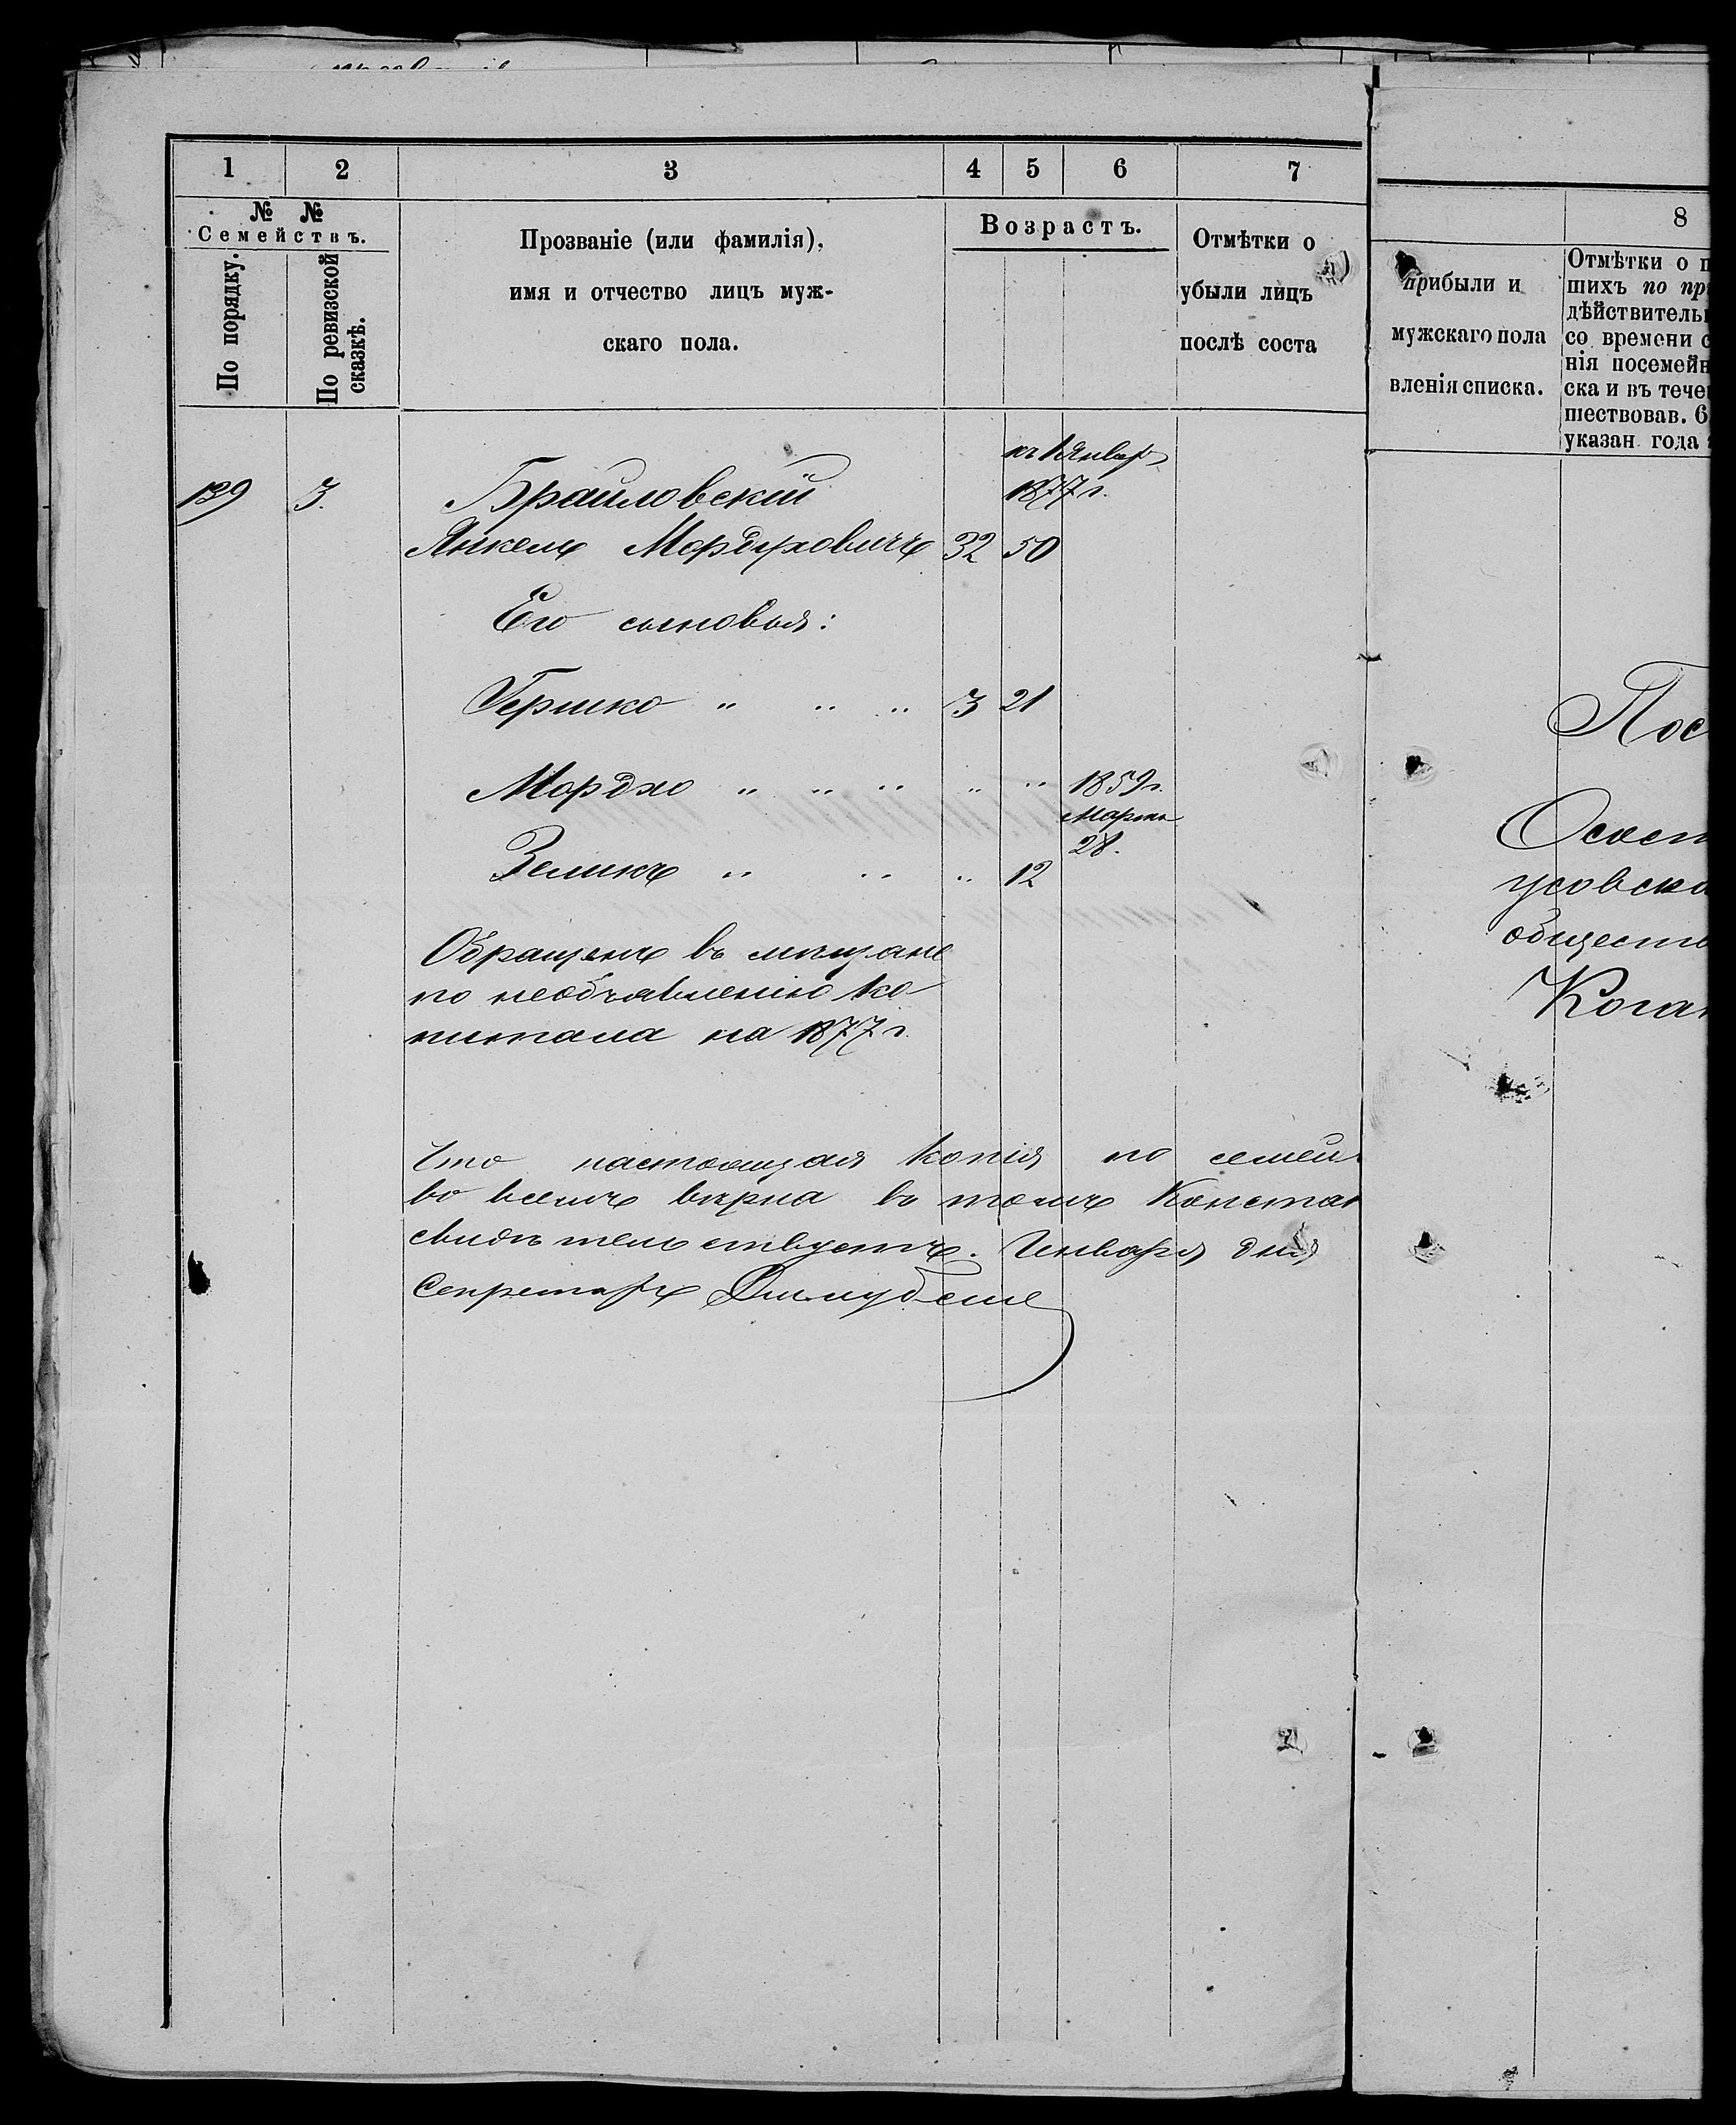 1 2 3 4 5 6 7
№ №
Семействъ.
По порядку.
По ревизской сказкѣ.
Прозваніе (или фамилія),
имя и отчество лицъ муж-
скаго пола.
Возрастъ.
Отмѣтки о
убыли лицъ
послѣ соста
къ 1 Январ
1877 г.
139 3. Браиловскій
Янкель Мордуховичъ 32 50
Его сыновья:
Гершко " " " 3 21
Мордхо " " " " " 1859 г.
Марта
28.
Зеликъ " " " 12
Обращенъ въ мѣщане
по необъявленію ка
питала на 1877 г.
Что настоящая копія по семей
во всемъ вѣрна въ томъ Констан
свидѣтельствуетъ. Января дня
Секретарь
8
прибыли и
мужскаго пола
вленія списка.
Отмѣтки о п
шихъ по пр
дѣйствитель
со времени с
нія посемейн
ска и въ тече
шествовав. 6
указан года
Пос
общест
Коган